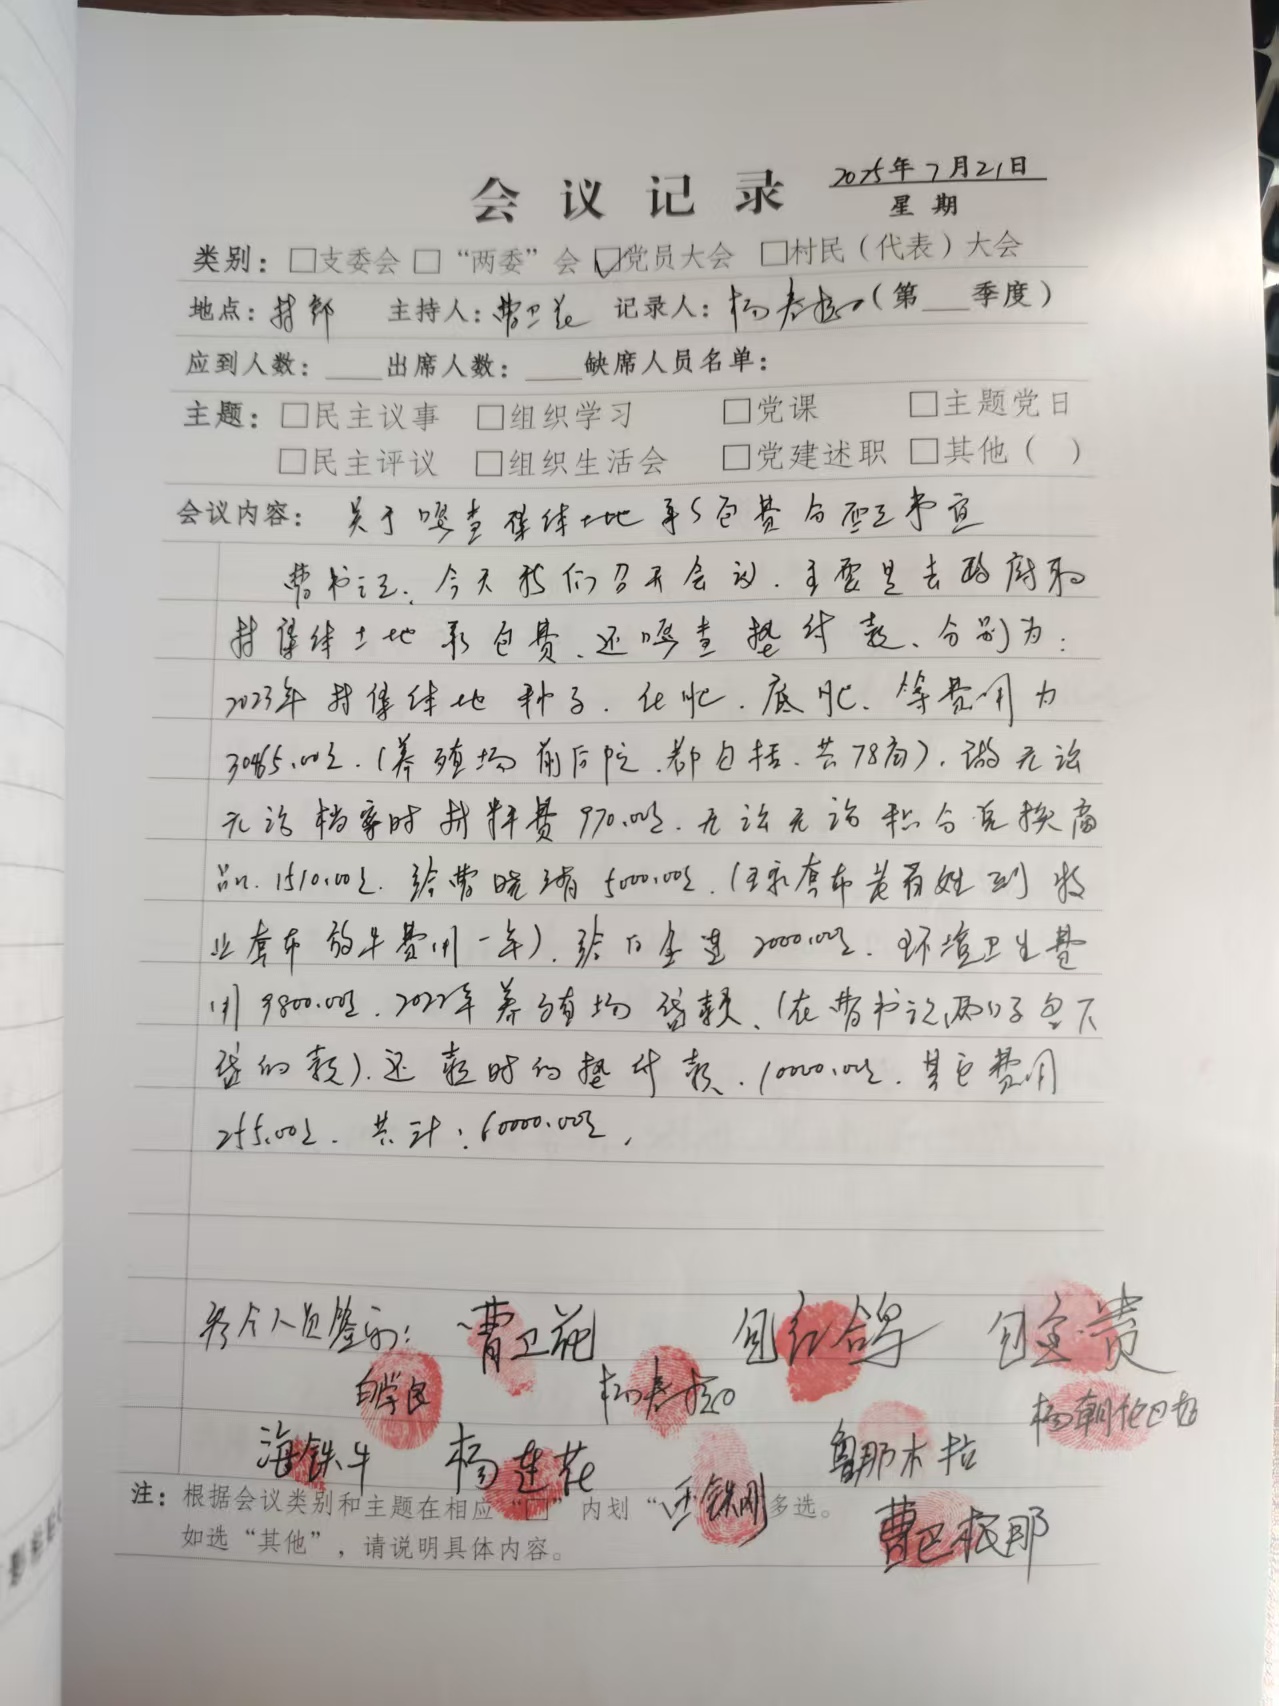 会议记录 2025年7月21日
星期
类别：□支委会 □“两委”会 ☑党员大会 □村民（代表）大会
地点：村部 主持人：曹卫花 记录人：杨春 （第___季度）
应到人数：____出席人数：____缺席人员名单：
主题：□民主议事 □组织学习 □党课 □主题党日
□民主评议 □组织生活会 □党建述职 □其他（ ）
会议内容：关于嘎查集体土地承包费分配事宜
曹书记：今天我们召开会议．主要是去政府取
村集体土地承包费、还嘎查垫付款、分别为：
2023年村集体地种子．化肥．底肥、等费用为
30465.00元．（养殖场前后院．都包括．共78亩）．
档案时材料费970.00元． 积分兑换商
品．1510.00元．给曹晓 5000.00元．（ 套布 百姓到牧
业套布放牛费用一年）．给白金莲2000.00元．环境卫生费
用9800.00元．2022年养殖场贷款、（在曹书记两口子名下
贷的款）．还款时的垫付款．10000.00元．其它费用
255.00元．共计：60000.00元．
参会人员签字：曹卫花 包红鸽 包金贵
白学良 杨春 杨朝伦巴
海铁牛 杨莲花 鲁那木拉
注：根据会议类别和主题在相应“□”内划“ 王铁刚 多选。
如选“其他”，请说明具体内容。 曹巴根那